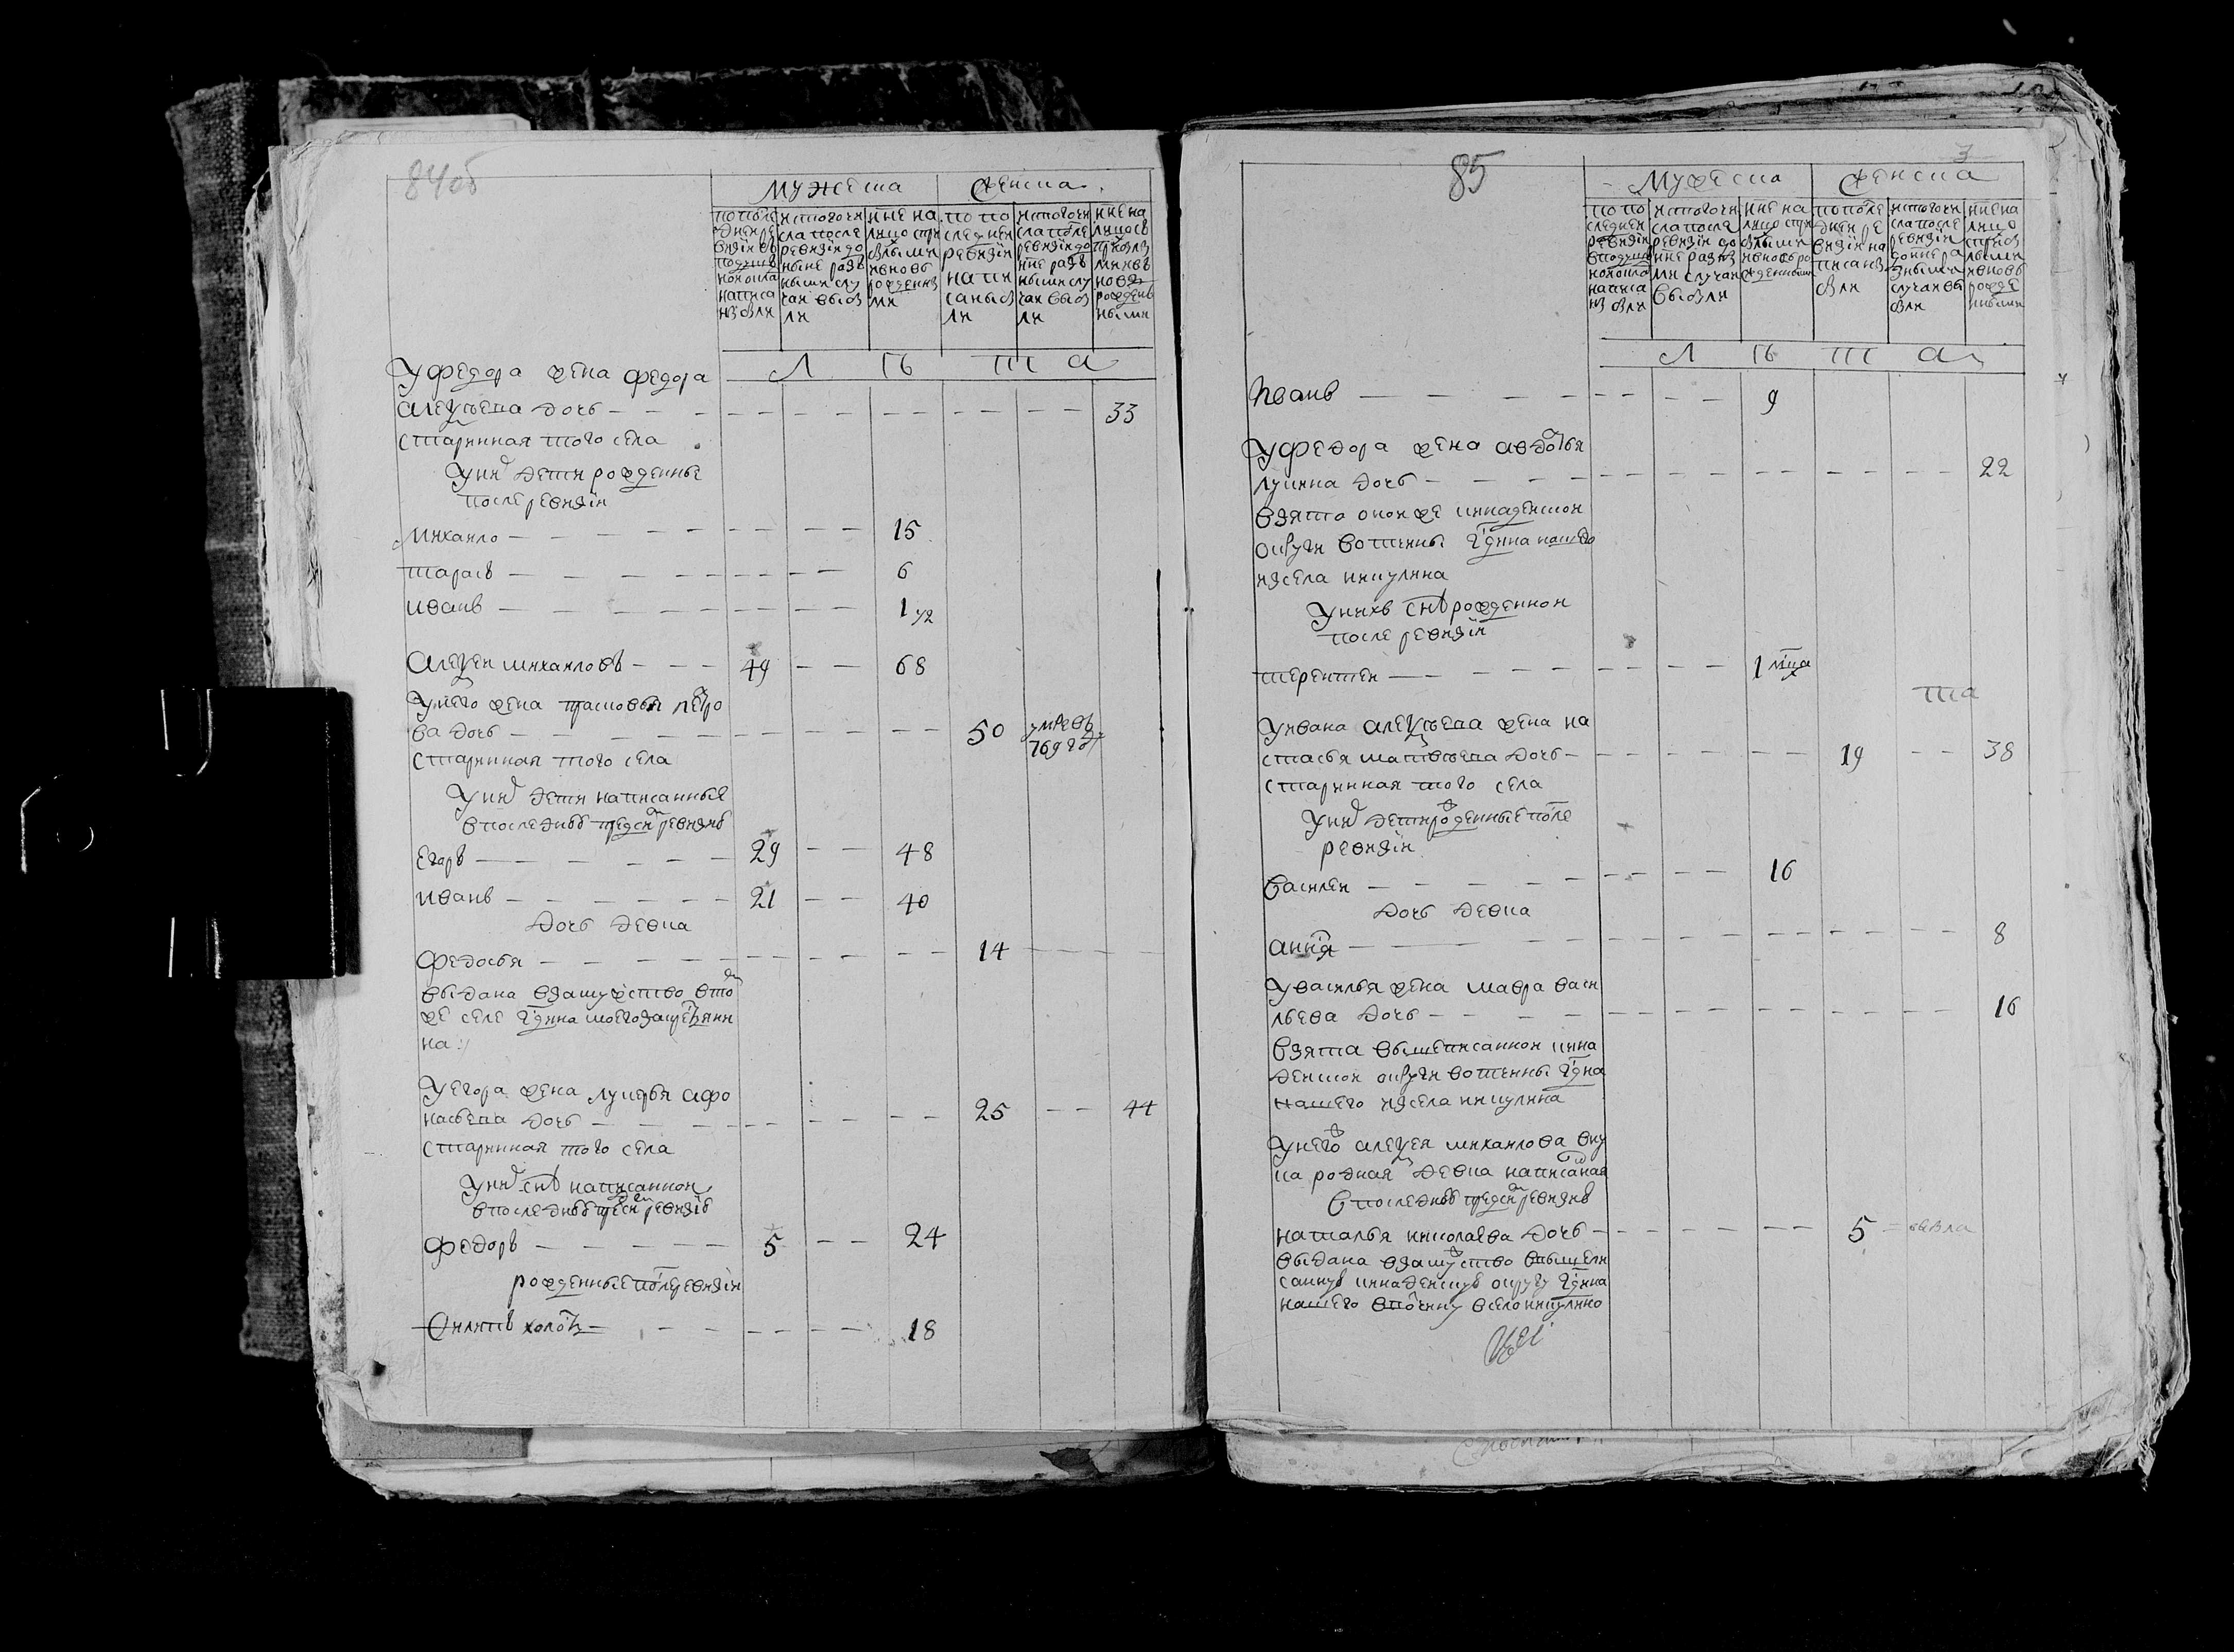 84об
мужеска женска
по после
дней ре
визiи въ
подушн
ной оклад
написа
нъ были
ис того чи
сла после
ревизiи до
ныне разъ
ными слу
чаи выбы
ли
ныне на
лицо с при
былыми
и вновь
рожденны
ми
по по
следней
ревизiи
напи
саны бы
ли
ис того чи
сла после
ревизiи до
ныне разъ
ными слу
чаи выбы
ли
ныне на
лицо съ
прибылы
ми и въ
новь
рожденъ
ными
Л ѣ т а
У федора жена федора
алексѣева дочь 33
старинная того села
У них дети рожденные
после ревизiи
михайло 15
тарасъ 6
иванъ 1 1/2
Алексей михайловъ 49 68
У него жена прасковья петро
ва дочь 50 умре въ
769 году
старинная того села
У них дети написанные
в последнюю пред сим ревизию
егоръ 29 48
иванъ 21 40
дочь девка
федосья 14
выдана в замужство в том
же селе гдна моего за крестьяни
на
У егора жена лукерья афо
насьева дочь 25 44
старинная того села
У них снъ написанной
в последнюю пред сим ревизiю
федоръ 5 24
рожденные после ревизiи
Филипъ холостъ 18
85
3
Мужеска женска
по по
следней
ревизiи
в подушн
ной оклад
написа
нъ были
ис того чи
сла после
ревизiи до
ныне разны
ми случаи
выбыли
ныне на
лицо с при
былыми
и вновь ро
жденными
по после
дней ре
визiи на
писаны
были
ис того чи
сла после
ревизiи
до ныне ра
зными
случаи вы
были
ныне на
лицо
с прибы
лыми
и вновь
рожде
нными
Л ѣ т а
Иванъ 9
У федора жена авдотья
лукина дочь 22
взята оной же
округи вотчины гдина нашего
из села никулина
У нихъ снъ рожденной
после ревизiи
терентей 1 мца
та
У ивана алексѣева жена на
стасья матвѣева дочь 19 38
старинная того села
У них дети рожденные после
ревизiи
василей 16
дочь девка
анна 8
У василья жена мавра васи
льева дочь 16
взята вышеписанной инна
денской округи вотчины гдна
нашего из села никулина
У него алексея михайлова вну
ка родная девка написаная
в последнюю пред сим ревизию
наталья николаева дочь 5 выбыла
выдана в замужство в вышепи
санную иннаденскую округу гдина
нашего вотчину в село никулино